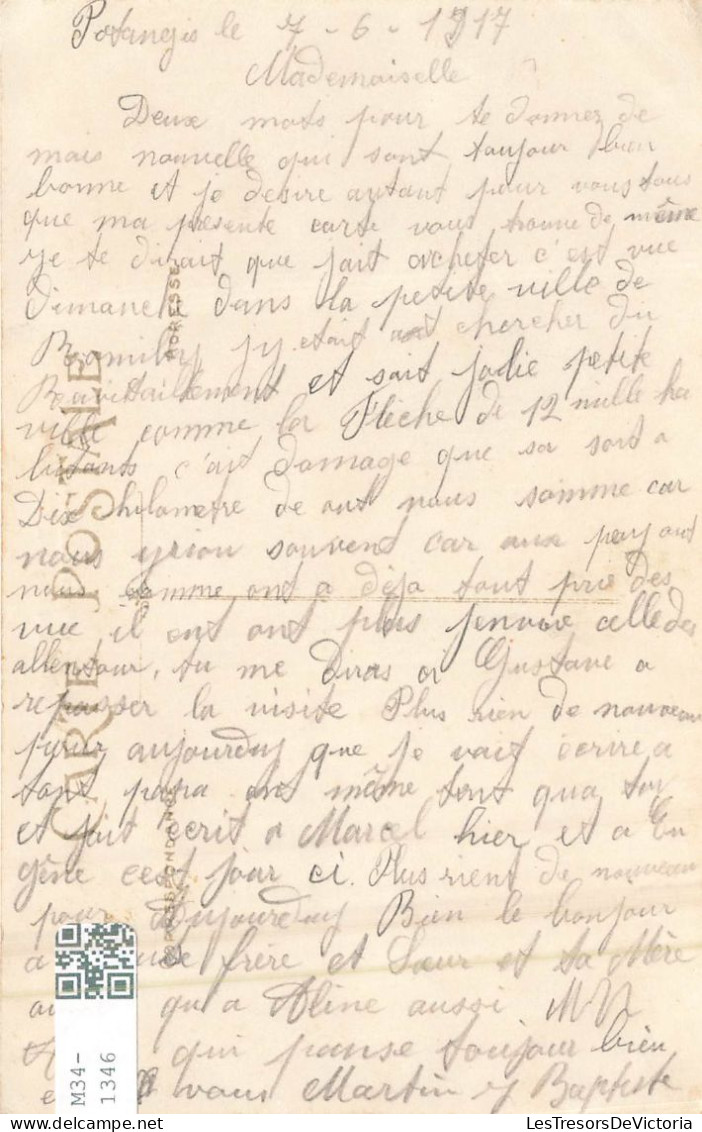 Potangis le 7-6-1917
Mademoiselle
Deux mots pour te donner de
mais nouvelle qui sont toujour bien
bonne et je desire autant pour vous tous
que ma présente carte vous trouve de même
je te dirait que jait acheter c'est vue
dimanche dans la petite ville de
Romilly jy etait chercher du
Ravitaillement et sait jolie petite
ville comme la Flèche de 12 mille ha
bitants c'ait domage que sa soit a
Dix kilometre de out nous somme car
nous yrion souvent car aux pay ont
nous somme ont a déja tout prie des
vue il ont ont plus jenvoie celle des
allentour, tu me diras si Gustave a
repasser la visite Plus rien de nouveau
pour aujourduy que je vait écrire a
ton papa en même temt qua toi
et jait écrit a Marcel hier et a Eu
gêne cest jour ci. Plus rient de nouveau
pour Aujourduy Bien le bonjour
a frère et Sœur et ta Mère
qu a Aline aussi
qui panse toujour bien
a vous Martin J Baptiste
CARTE POSTALE
CORRESPONDANCE
ADRESSE
M34-
1346
LesTresorsDeVictoria
delcampe.net